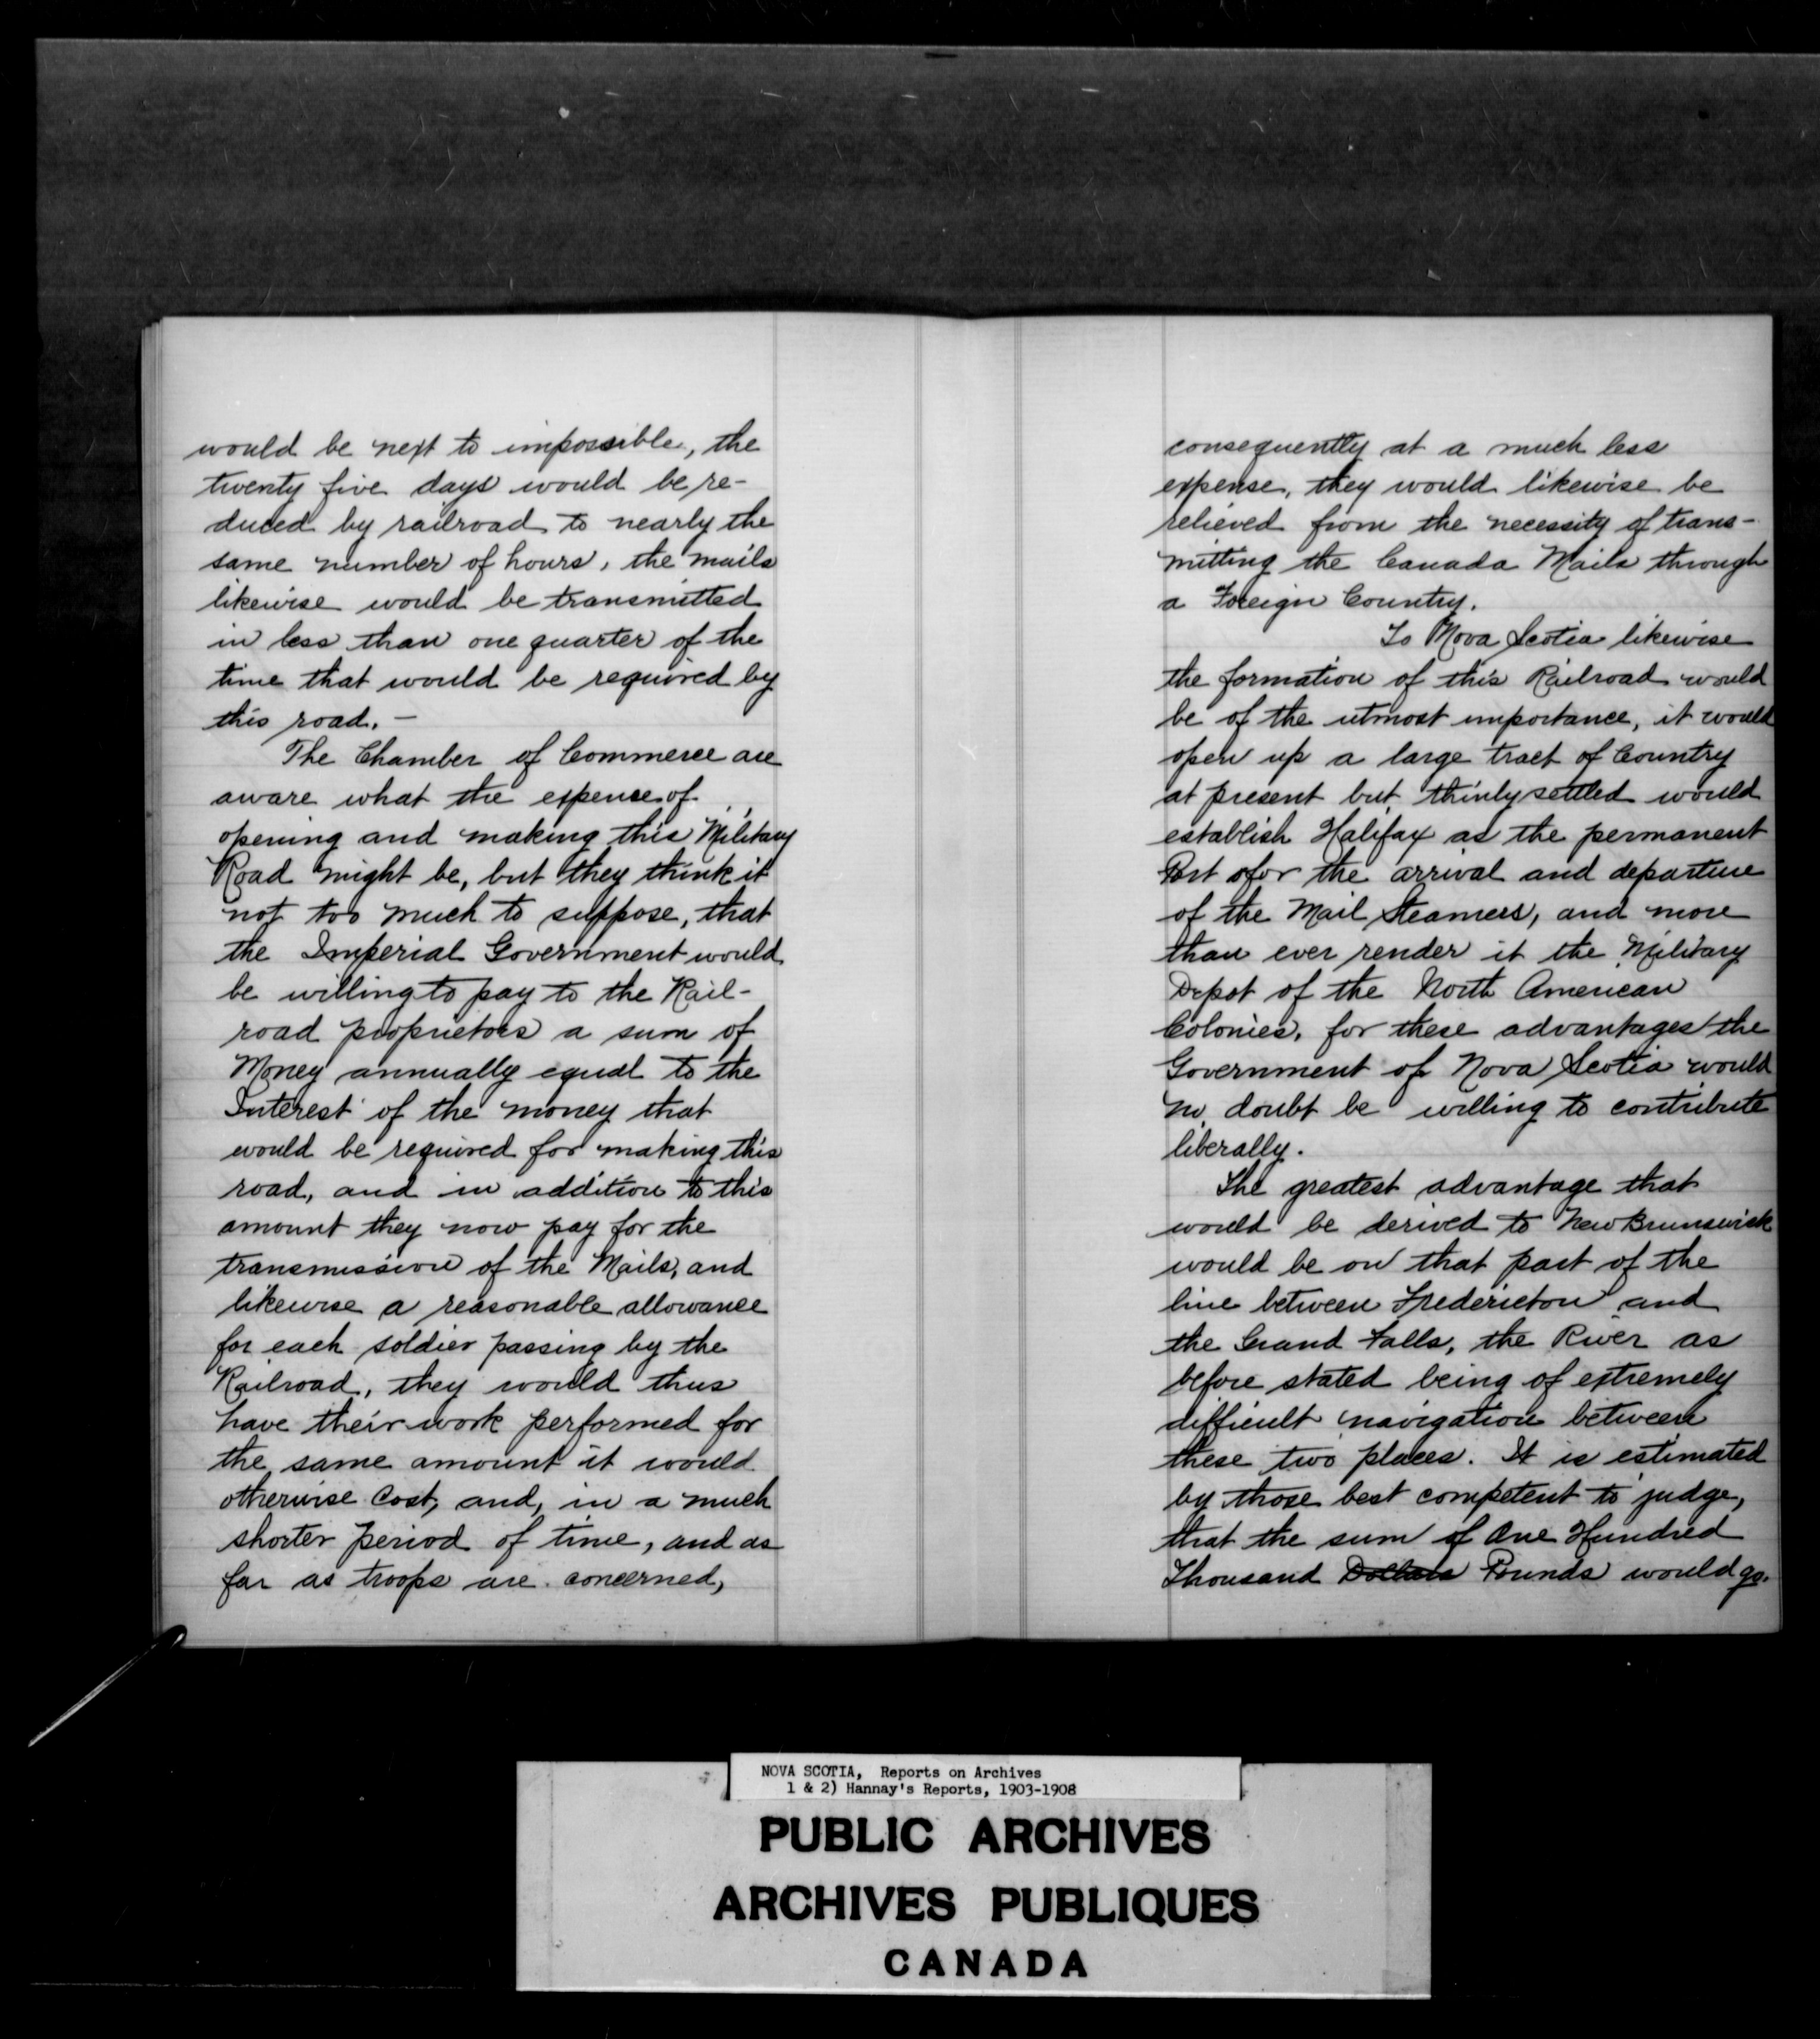 would be next to impossible, the
twenty five days would be re-
duced by railroad to nearly the
same number of hours, the mails
likewise would be transmitted
in less than one quarter of the
time that would be required by
this road. -
The Chamber of Commerce are
aware what the expense of
opening and making this Military
Road might be, but they think it
not too much to suppose, that
the Imperial Government would
be willing to pay to the Rail-
road proprietors a sum of
Money annually equal to the
Interest of the money that
would be required for making this
road, and in addition to this
amount they now pay for the
transmission of the Mails, and
likewise a reasonable allowance
for each soldier passing by the
Railroad, they would thus
have their work performed for
the same amount it would
otherwise Cost, and, in a much
shorter period of time, and as
far as troops are concerned,
consequently at a much less
expense, they would likewise be
relieved from the necessity of trans-
mitting the Canada Mails through
a Foreign Country.
To Nova Scotia likewise
the formation of this Railroad would
be of the utmost importance, it would
open up a large tract of Country
at present but thinly settled would
establish Halifax as the permanent
Port for the arrival and departure
of the Mail Steamers, and more
than ever render it the Military
Depot of the North American
Colonies, for these advantages the
Government of Nova Scotia would
no doubt be willing to contribute
liberally.
The greatest advantage that
would be derived to New Brunswick
would be on that part of the
line between Fredericton and
the Grand Falls, the River as
before stated being of extremely
difficult navigation between
these two places. It is estimated
by those best competent to judge,
that the sum of One Hundred
Thousand Dollars Pounds would go
NOVA SCOTIA, Reports on Archives
1 & 2) Hannay's Reports, 1903-1908
PUBLIC ARCHIVES
ARCHIVES PUBLIQUES
CANADA